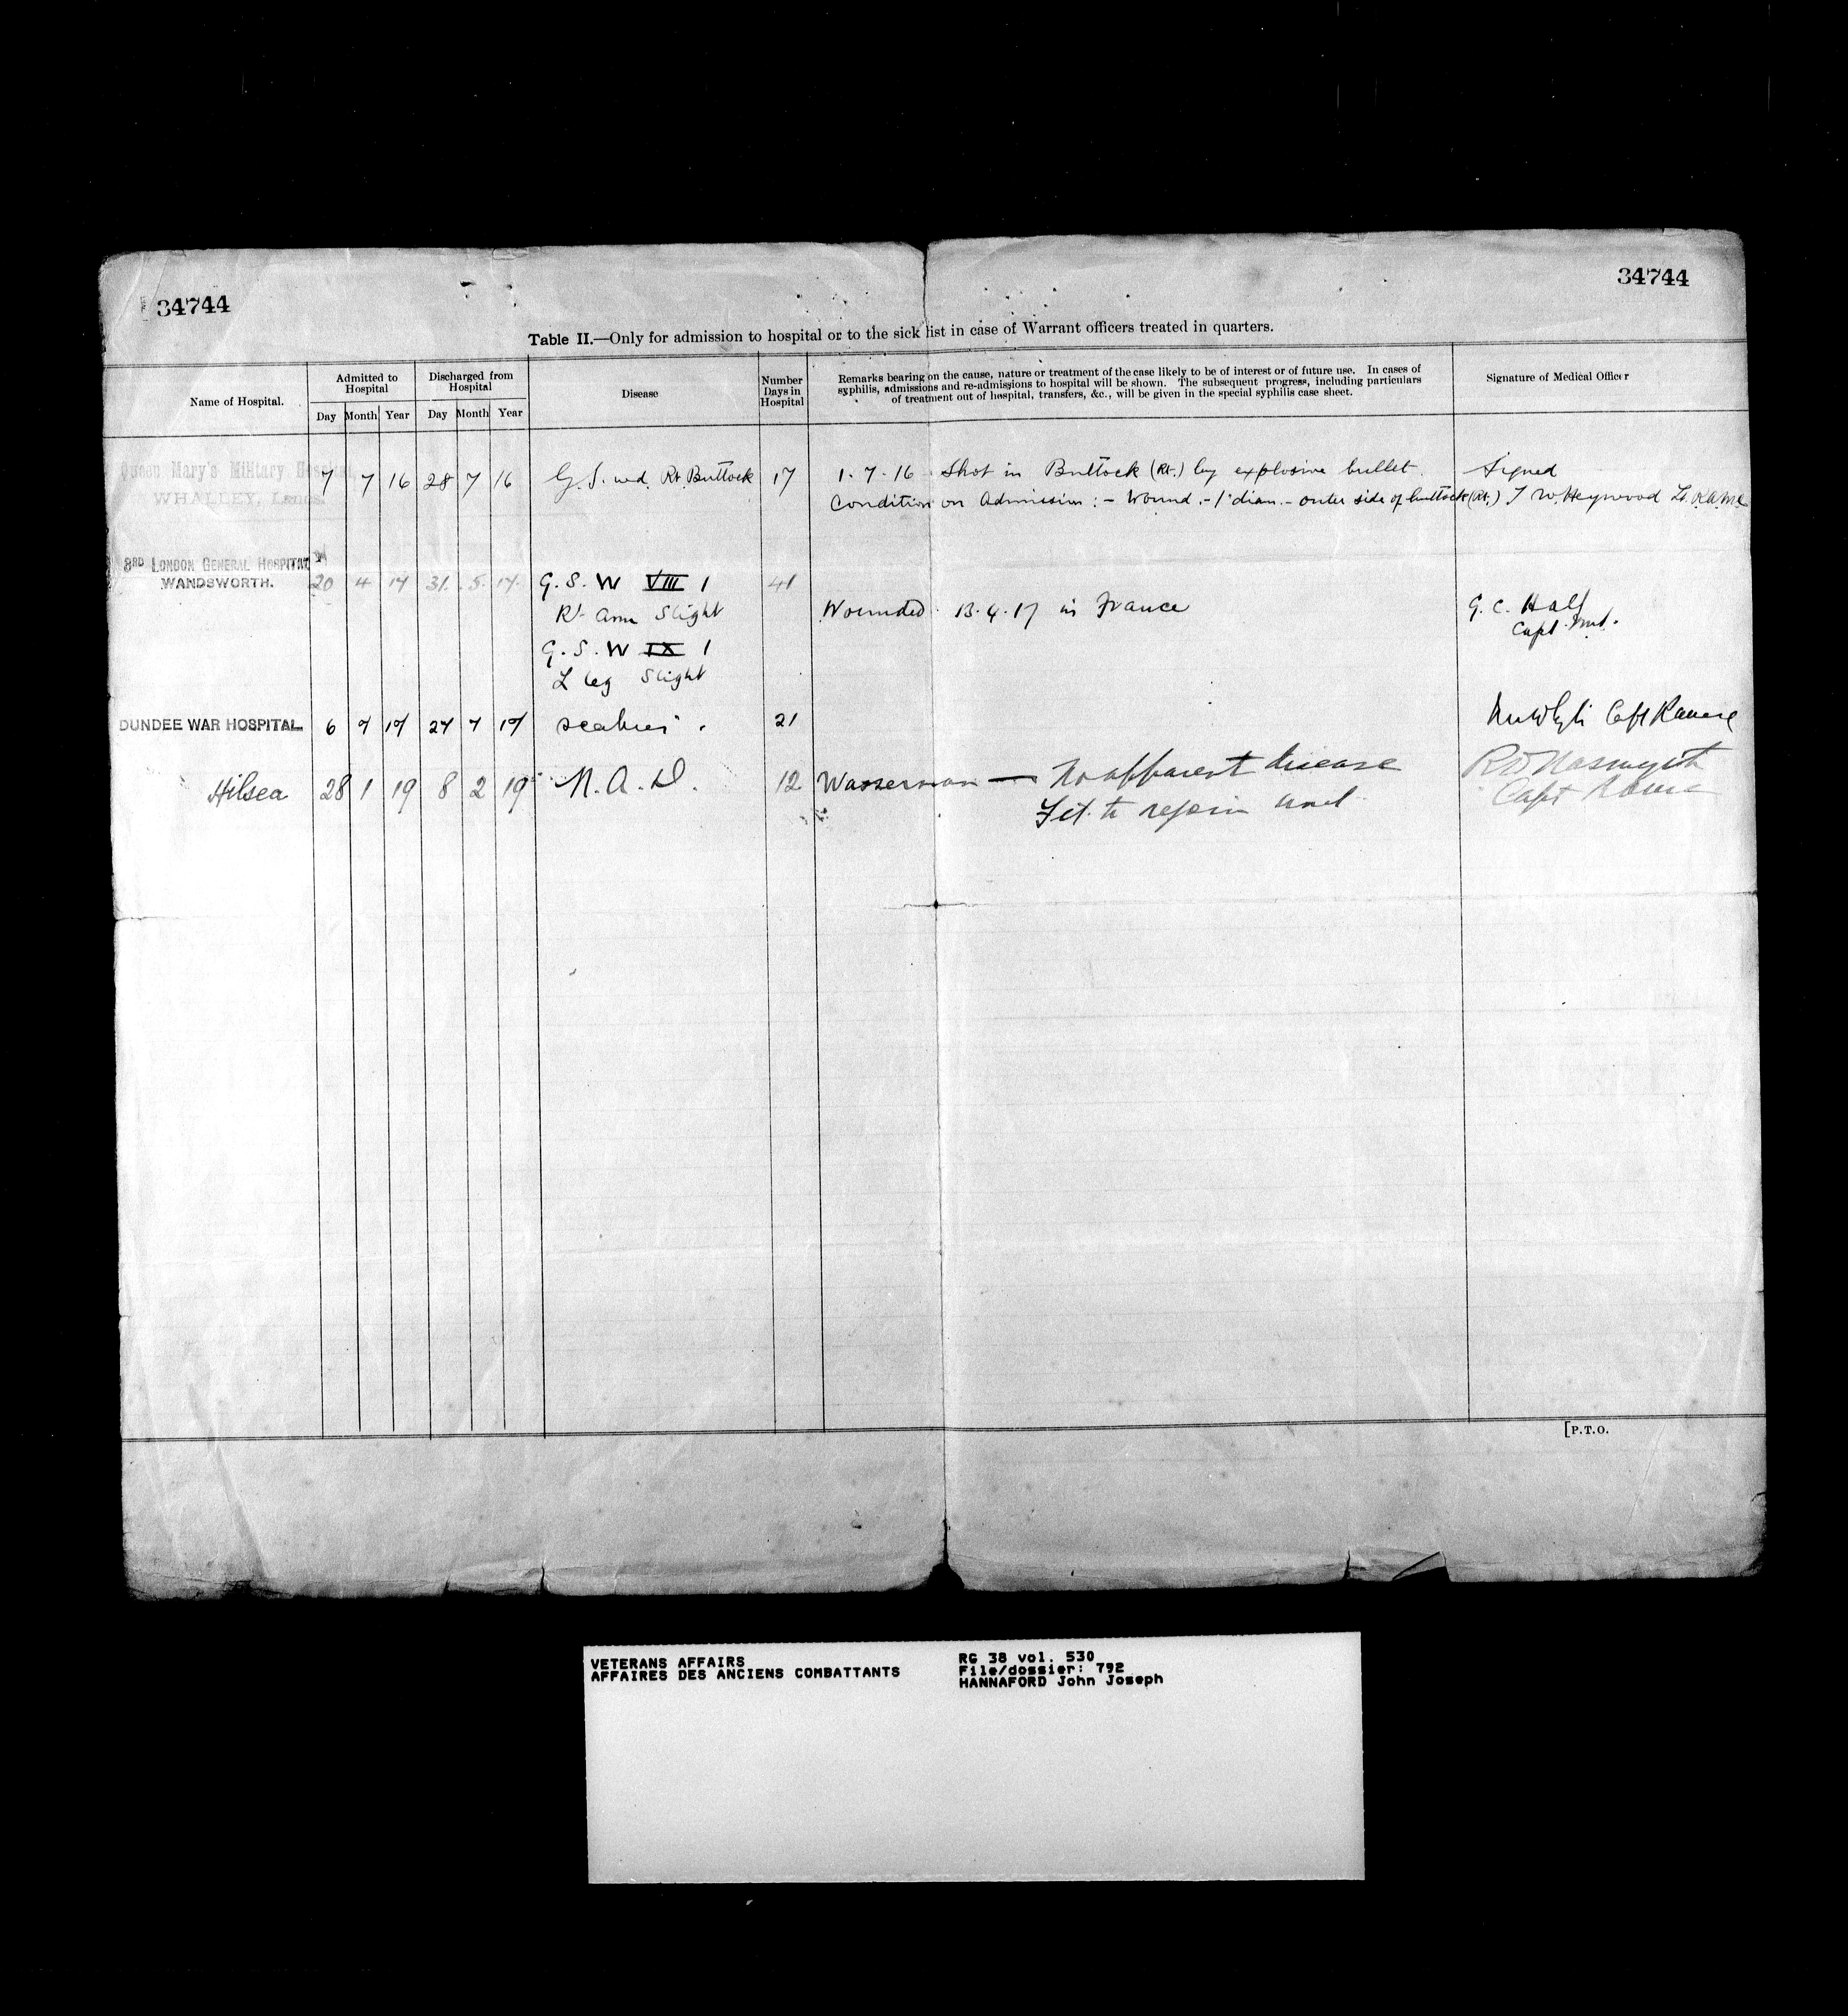 34744
34744
Table II.—Only for admission to hospital or to the sick list in case of Warrant officers treated in quarters.
Name of Hospital.
Admitted to Hospital
Discharged from Hospital
Disease
Number Days in Hospital
Remarks bearing on the cause, nature or treatment of the case likely to be of interest or of future use. In cases of
syphilis, admissions and re-admissions to hospital will be shown. The subsequent progress, including particulars
of treatment out of hospital, transfers, &c., will be given in the special syphilis case sheet.
Signature of Medical Officer
Day Month Year Day Month Year
Queen Mary's Military Hospital
WHALLEY, Lancs.
7 7 16 28 7 16 G. S. wd. Rt. Buttock 17 1.7.16 Shot in Buttock (Rt.) by explosive bullet. Signed
Condition on Admission :- Wound - 1" diam - outer side of buttock (Rt.) T W Heywood Lt. R.A.M.C
3RD LONDON GENERAL HOSPITAL
WANDSWORTH. 20 4 17 31 5 17 G. S. W VIII 1 41
Rt arm Slight Wounded 13.4.17 in France G. C. Hall
Capt
G. S. W IX 1
L leg Slight
DUNDEE WAR HOSPITAL 6 7 17 27 7 17 scabies . 21 Capt Ramc
Hilsea 28 1 19 8 2 19 N. A. D. 12 Wasserman — No apparent disease R W Nasmyth
Fit to rejoin unit Capt Ramc
[P.T.O.
VETERANS AFFAIRS
AFFAIRES DES ANCIENS COMBATTANTS
RG 38 vol. 530
File/dossier: 792
HANNAFORD John Joseph